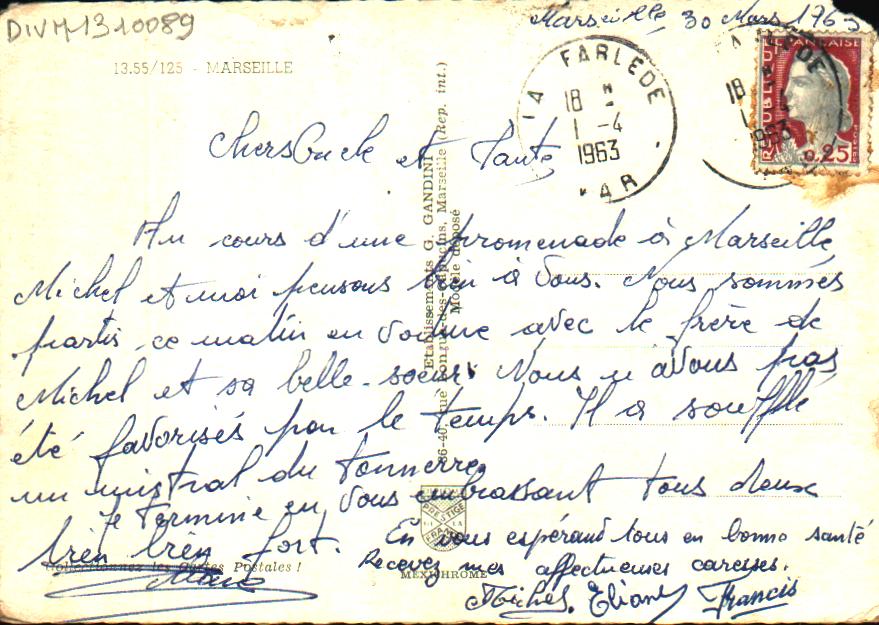 DIVM1310089
Marseille 30 Mars 1963
13.55/125 - MARSEILLE
LA FARLEDE
18 H
1 - 4
1963
VAR
18
1963
REPUBLIQUE FRANÇAISE
0.25
Chers Oncle et Tante
Au cours d'une promenade à Marseille,
Michel et moi pensons bien à Vous. Nous sommes
partis ce matin en voiture avec le frère de
Michel et sa belle-soeur. Nous n'avons pas
été favorisés par le temps. Il a soufflé
un mistral du tonnerre.
Je termine en Vous embrassant tous deux
bien bien fort.
En vous espérant tous en bonne santé
Recevez mes affectueuses caresses.
Michel. Eliane Francis
Etablissements G. GANDINI
36-40, rue Longue-des-Capucins, Marseille (Rep. int.)
Modèle déposé
PRESTIGE
DE LA
FRANCE
Collectionnez les Cartes Postales !
MEXICHROME